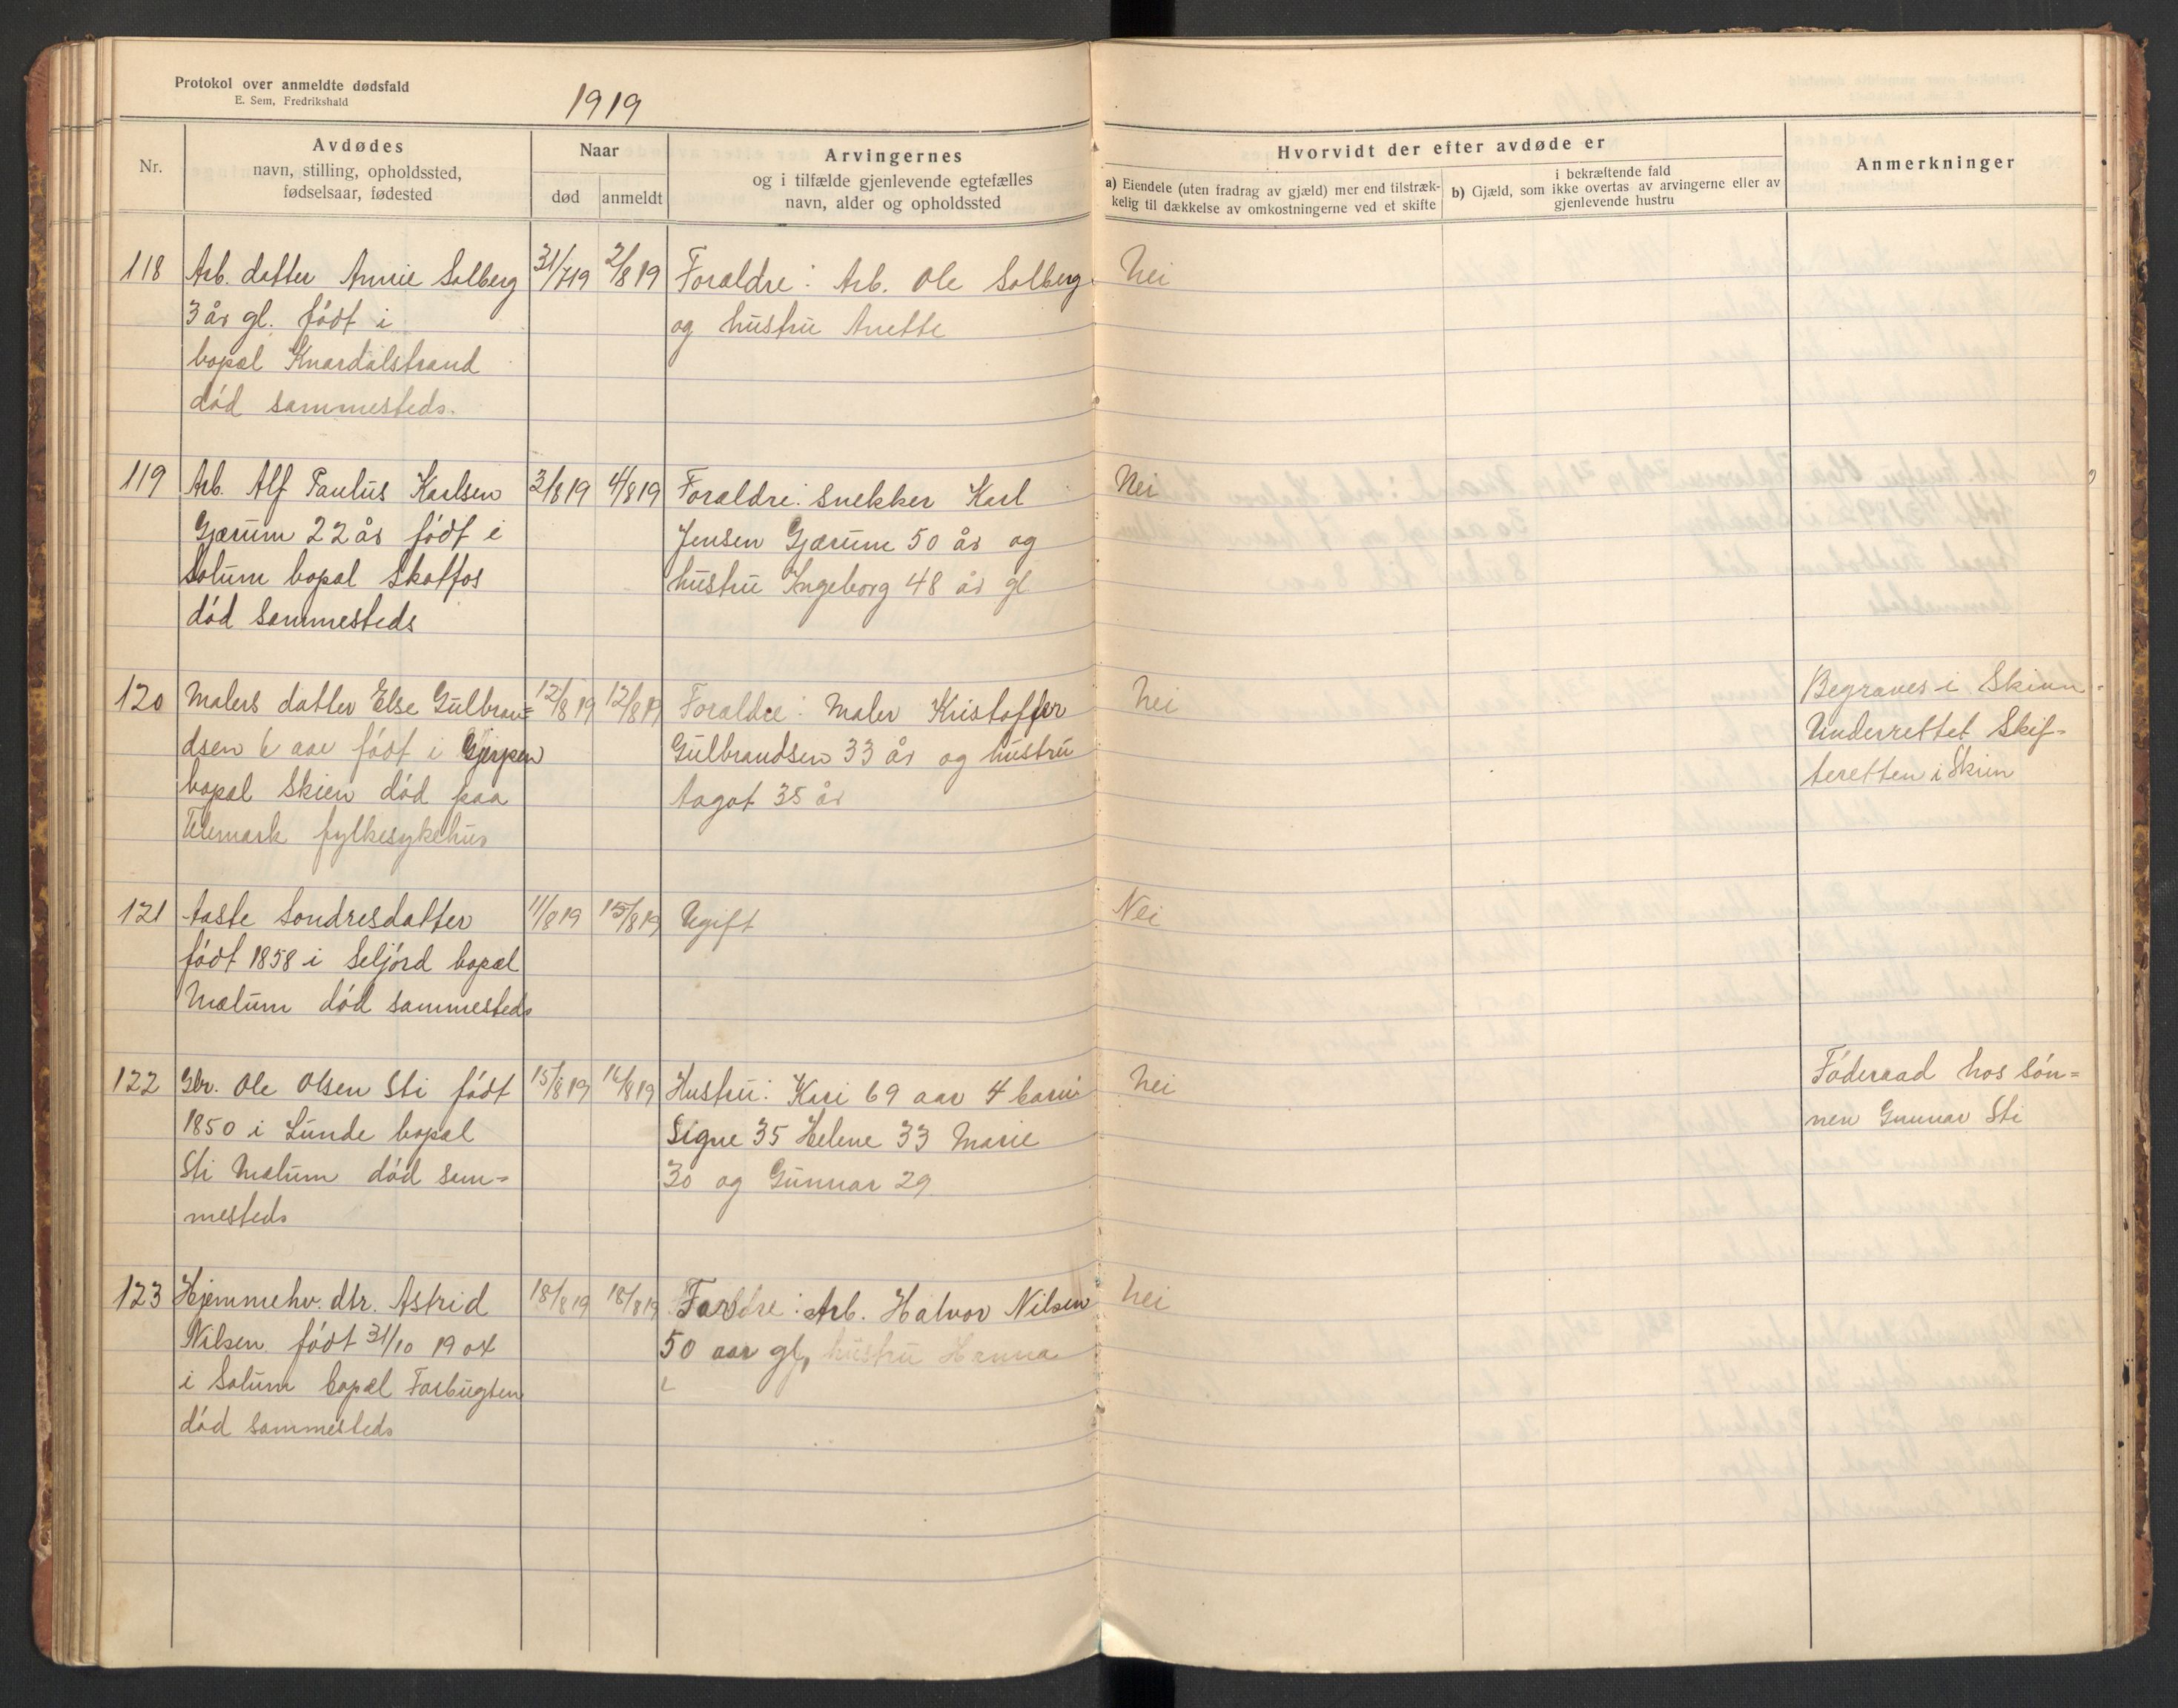 Protokol over anmeldte dødsfald
E. Sem, Fredrikshald
1919
Nr.
Avdødes
navn, stilling, opholdssted,
fødselsaar, fødested
Naar
død
anmeldt
Arvingernes
og i tilfælde gjenlevende egtefælles
navn, alder og opholdssted
Hvorvidt der efter avdøde er
a) Eiendele (uten fradrag av gjæld) mer end tilstræk-
kelig til dækkelse av omkostningerne ved et skifte
i bekræftende fald
b) Gjæld, som ikke overtas av arvingerne eller av
gjenlevende hustru
Anmerkninger
118 Arb. datter Annie Solberg 31/7 19 2/8 19 Foraldre: Arb. Ole Solberg Nei
3 år gl. født i og hustru Anette
bopæl Knardalstrand
død sammesteds.
119 Arb. Alf Paulus Karlsen 3/8 19 4/8 19 Foraldre: Snekker Karl Nei
Gjærum 22 år født i Jensen Gjærum 50 år og
Solum bopal Skotfos hustru Ingeborg 48 år gl
død sammesteds
120 Malers datter Else Gulbran= 12/8 19 12/8 19 Foraldre: Maler Kristoffer Nei Begraves i Skien.
dsen 6 aar født i Gjerpen Gulbrandsen 33 år og hustru Underrettet Skif-
bopal Skien død paa Aagot 35 år teretten i Skien
Telemark fylkesykehus
121 Aaste Sondresdatter 11/8 19 15/8 19 Ugift Nei
født 1858 i Seljord bopæl
Mælum død sammesteds
122 Gbr. Ole Olsen Sti født 15/8 19 16/8 19 Hustru: Kari 69 aar 4 barn: Nei Føderaad hos søn=
1850 i Lunde bopæl Signe 35 Helene 33 Marie nen Gunnar Sti
Sti Mælum død sam= 30 og Gunnar 29
mesteds
123 Hjemmehv. dtr. Astrid 18/8 19 18/8 19 Forldre: Arb. Halvor Nilsen Nei
Nilsen født 31/10 1904 50 aar gl, hustru Hanna
i Solum bopæl Forbugten
død sammesteds